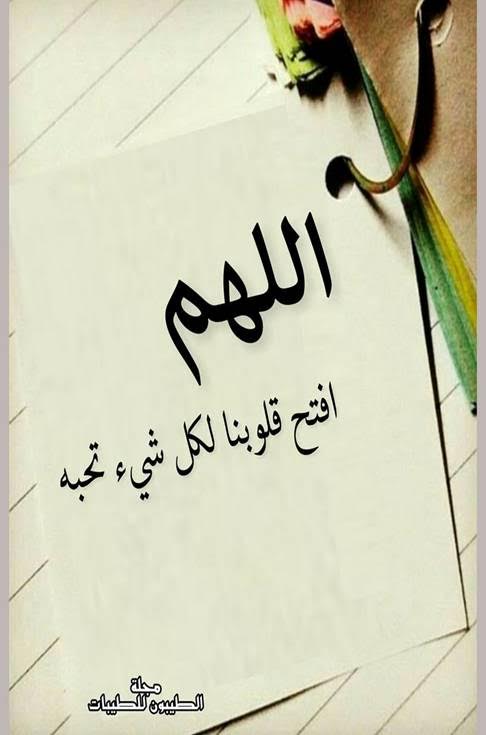 اللهم
افتح قلوبنا لكل شيء تحبه
مجلة
الطيبون للطيبات